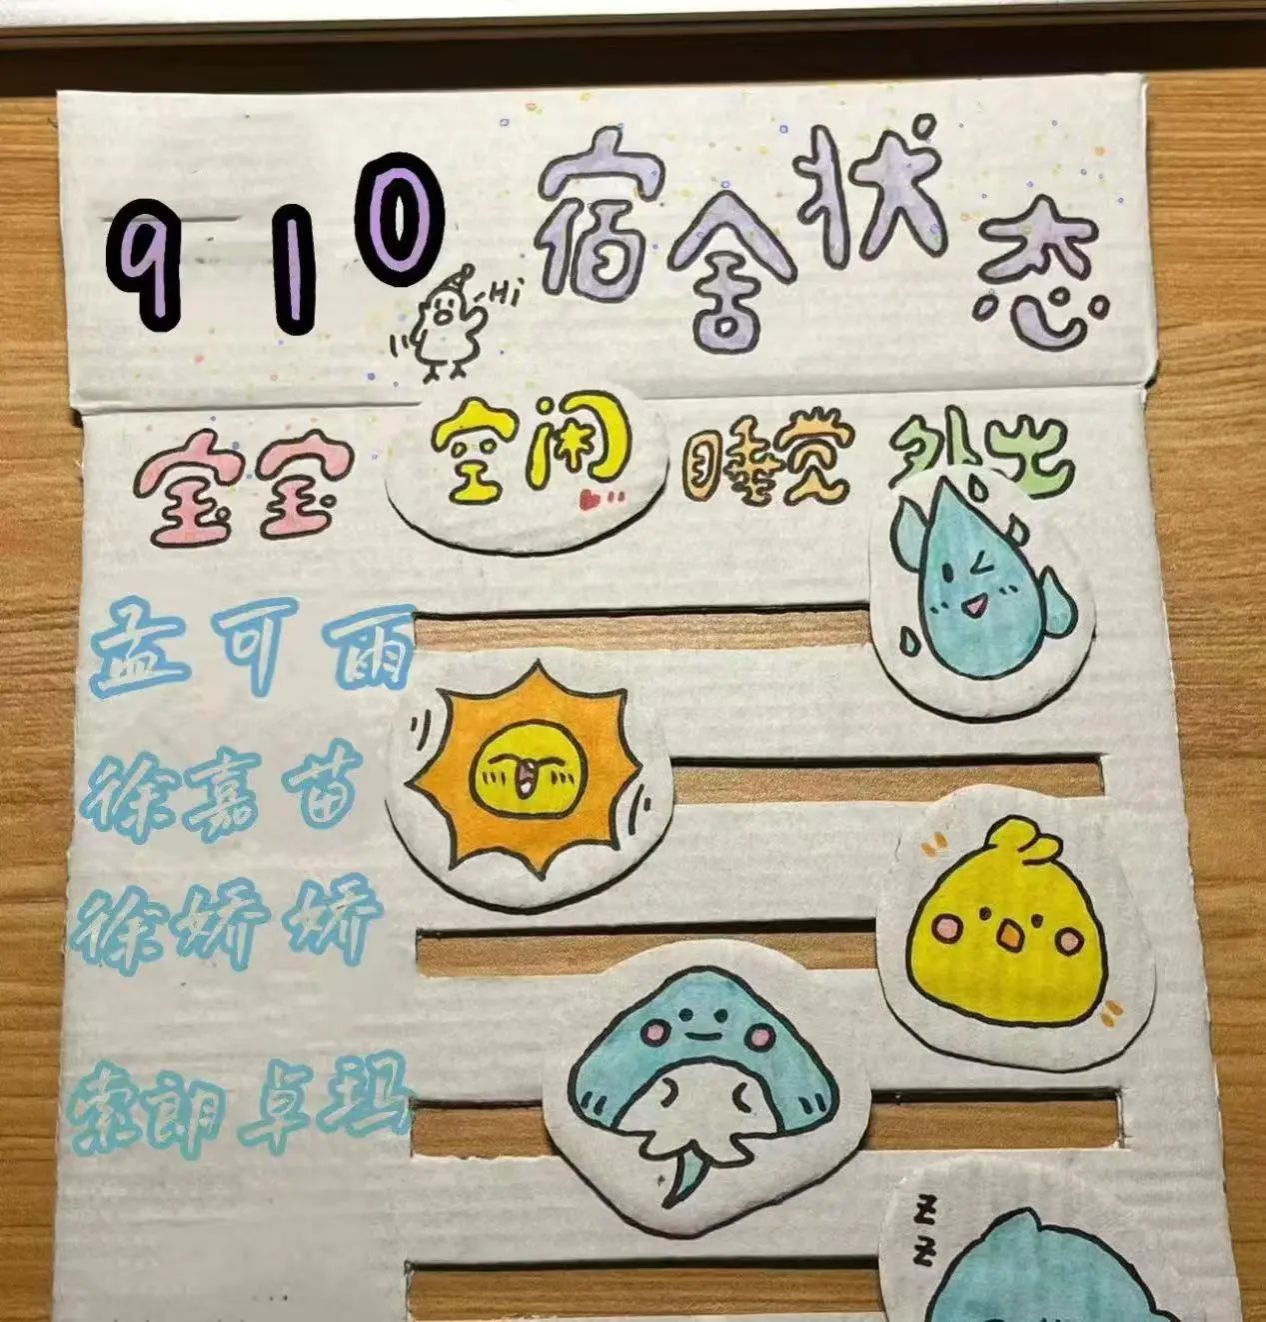 910 宿舍状态
Hi
宝宝 空闲 睡觉 外出
孟可雨
徐嘉苗
徐娇娇
索朗卓玛
z
z